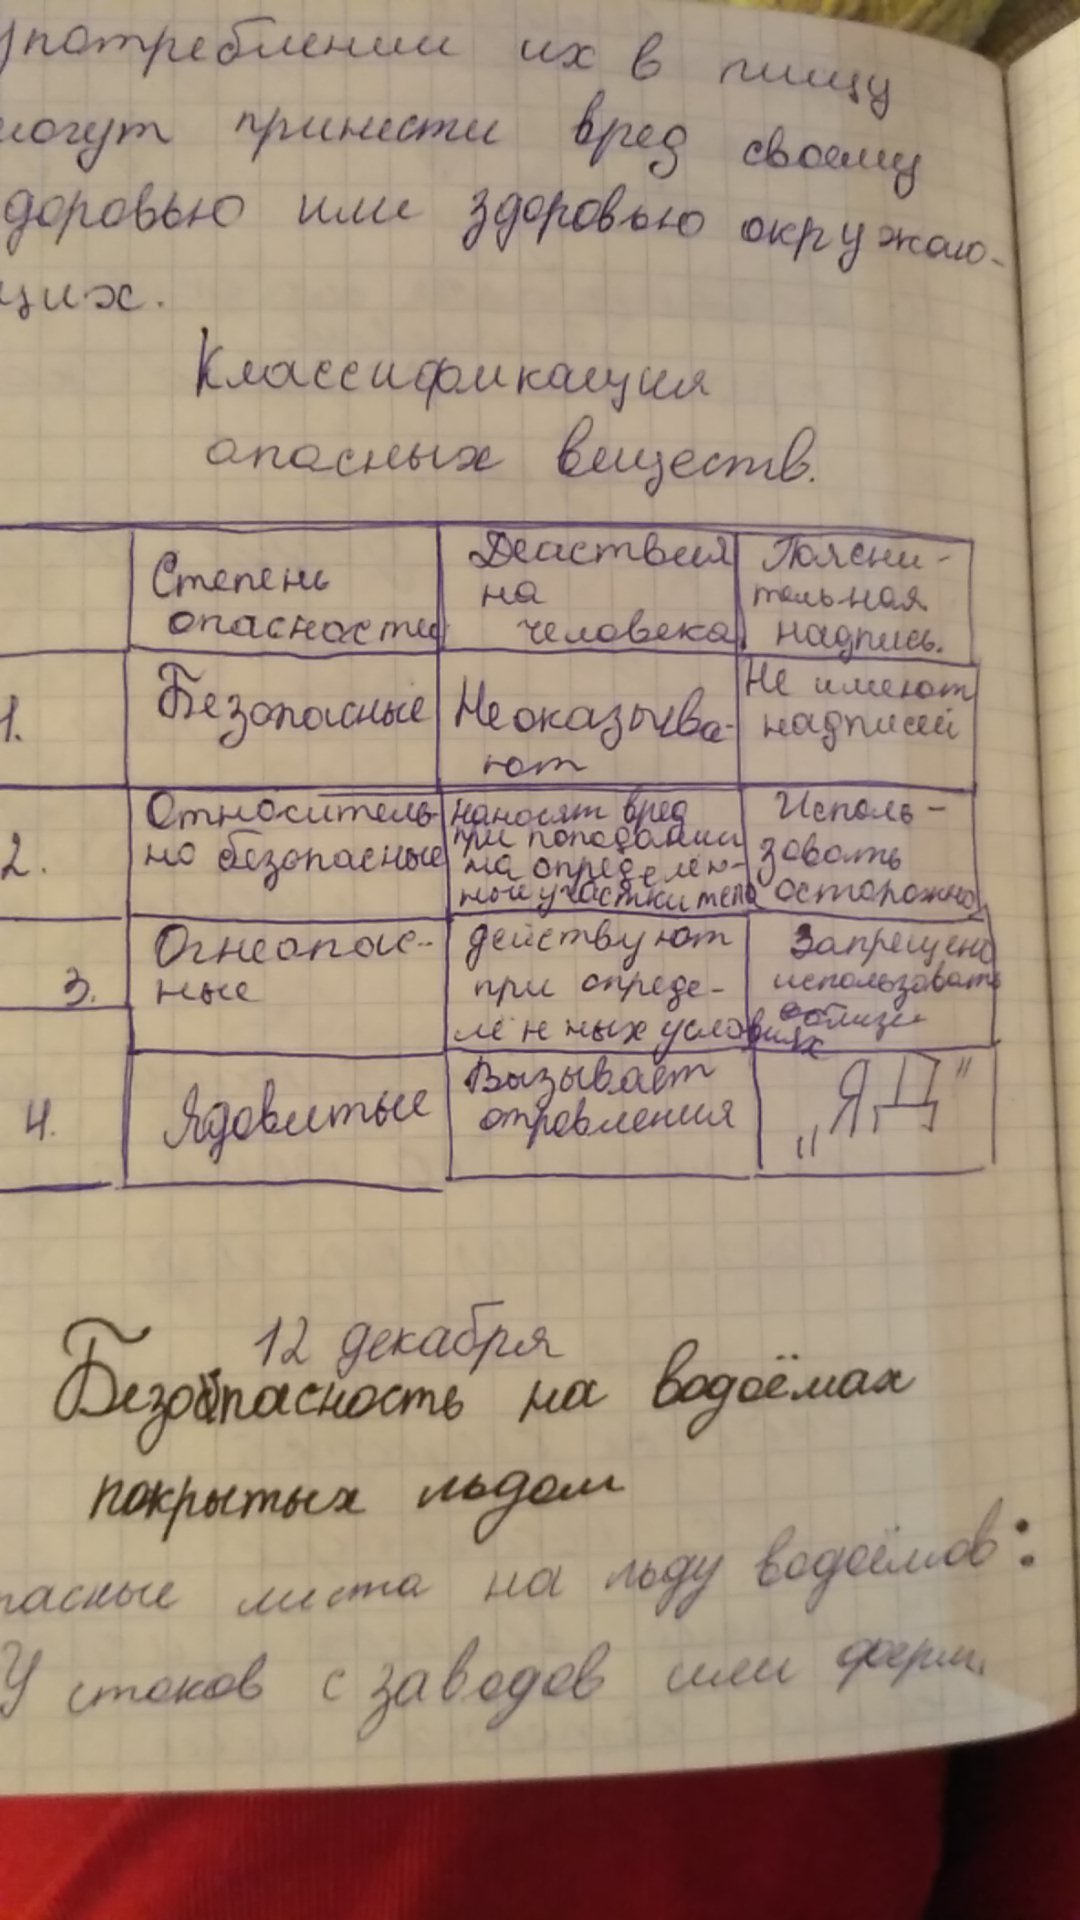 употреблении их в пищу
могут принести вред своему
здоровью или здоровью окружаю-
щих.
Классификация
опасных веществ.
Степень опасности
Действия на человека
Поясни-тельная надпись.
1.
Безопасные
Не оказыва-ют
Не имеют надписей
2.
Относитель-но безопасные
наносят вред при попадании на определён-ные участки тела
Исполь-зовать осторожно
3.
Огнеопас-ные
действуют при опреде-лённых условиях
Запрещено использовать вблизи
4.
Ядовитые
Вызывает отровления
„ЯД"
12 декабря
Безопасность на водоёмах
покрытых льдом
пасные места на льду водоёмов:
У стоков с заводов или ферм.